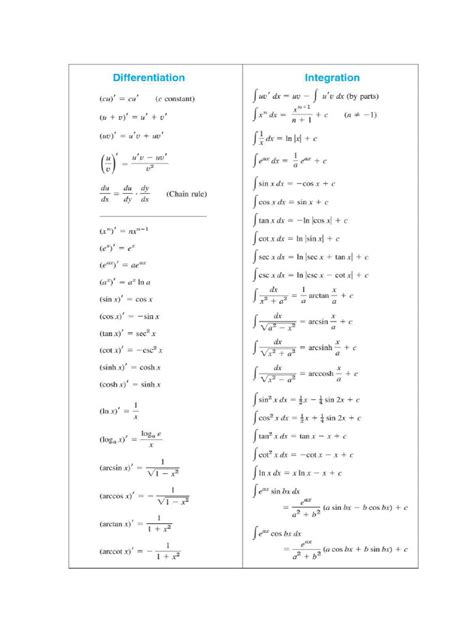 Differentiation
(cu)' = cu' (c constant)
(u + v)' = u' + v'
(uv)' = u'v + uv'
(u/v)' = (u'v − uv')/v²
du/dx = du/dy · dy/dx (Chain rule)
(xⁿ)' = nxⁿ⁻¹
(eˣ)' = eˣ
(eᵃˣ)' = aeᵃˣ
(aˣ)' = aˣ ln a
(sin x)' = cos x
(cos x)' = −sin x
(tan x)' = sec² x
(cot x)' = −csc² x
(sinh x)' = cosh x
(cosh x)' = sinh x
(ln x)' = 1/x
(logₐ x)' = logₐ e/x
(arcsin x)' = 1/√(1 − x²)
(arccos x)' = −1/√(1 − x²)
(arctan x)' = 1/(1 + x²)
(arccot x)' = −1/(1 + x²)
Integration
∫uv' dx = uv − ∫u'v dx (by parts)
∫xⁿ dx = xⁿ⁺¹/(n + 1) + c (n ≠ −1)
∫1/x dx = ln |x| + c
∫eᵃˣ dx = 1/a eᵃˣ + c
∫sin x dx = −cos x + c
∫cos x dx = sin x + c
∫tan x dx = −ln |cos x| + c
∫cot x dx = ln |sin x| + c
∫sec x dx = ln |sec x + tan x| + c
∫csc x dx = ln |csc x − cot x| + c
∫dx/(x² + a²) = 1/a arctan x/a + c
∫dx/√(a² − x²) = arcsin x/a + c
∫dx/√(x² + a²) = arcsinh x/a + c
∫dx/√(x² − a²) = arccosh x/a + c
∫sin² x dx = ½x − ¼ sin 2x + c
∫cos² x dx = ½x + ¼ sin 2x + c
∫tan² x dx = tan x − x + c
∫cot² x dx = −cot x − x + c
∫ln x dx = x ln x − x + c
∫eᵃˣ sin bx dx
= eᵃˣ/(a² + b²) (a sin bx − b cos bx) + c
∫eᵃˣ cos bx dx
= eᵃˣ/(a² + b²) (a cos bx + b sin bx) + c